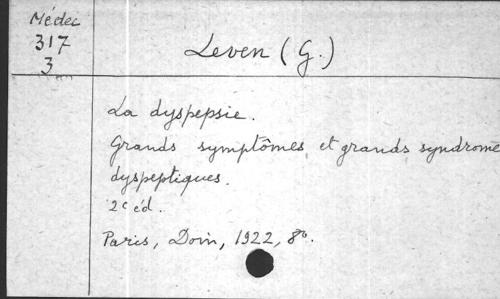 Médec
317
3
Leven (G.)
La dyspepsie.
Grands symptômes et grands syndrome
dyspeptiques.
2e éd.
Paris, Doin, 1922, 8º.